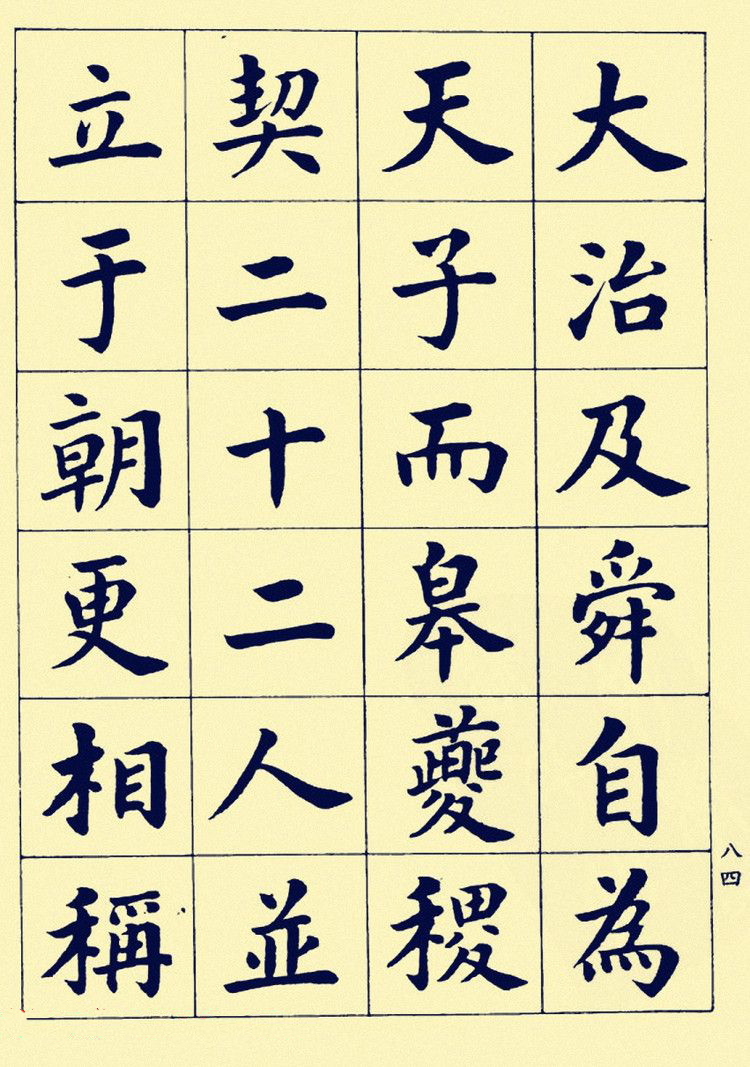 大治及舜自為
天子而皋夔稷
契二十二人並
立于朝更相稱
八四